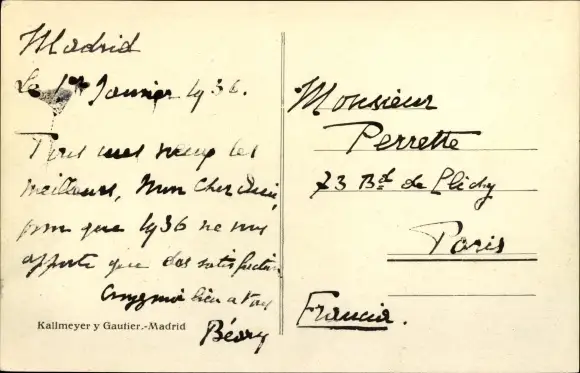 Madrid
Le 1er Janvier 1936.
Tous mes vœux les
meilleurs, Mon Cher
pour que 1936 ne vous
apporte que des satisfactions
bien a vous
Béary
Kallmeyer y Gautier.-Madrid
Monsieur
Perrette
73 Bd de Clichy
Paris
Francia.